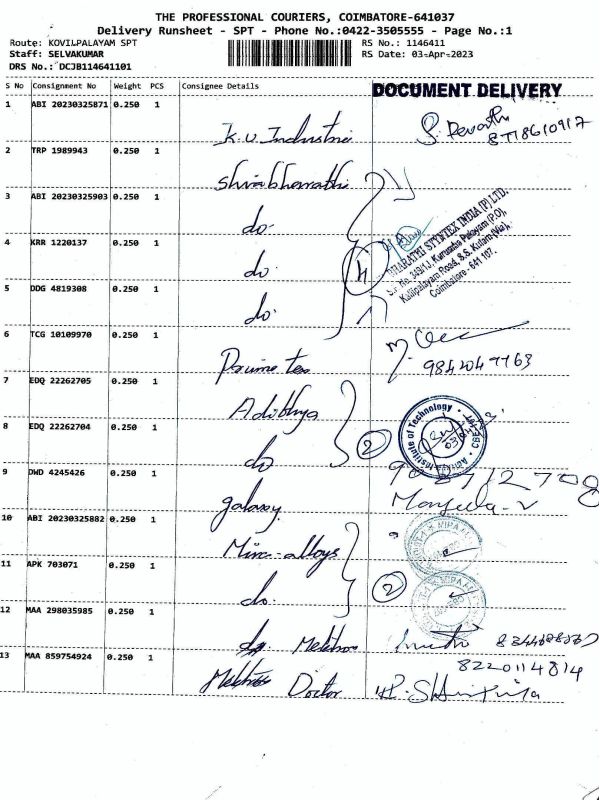 THE PROFESSIONAL COURIERS, COIMBATORE-641037
Delivery Runsheet - SPT - Phone No.:0422-3505555 - Page No.:1
Route: KOVILPALAYAM SPT RS No.: 1146411
Staff: SELVAKUMAR RS Date: 03-Apr-2023
DRS No.: DCJB114641101
S No Consignment No Weight PCS Consignee Details DOCUMENT DELIVERY
1 ABI 20230325871 0.250 1
K.U. Industri S. Revathi
8718610917
2 TRP 1989943 0.250 1
Shivabharathi
3 ABI 20230325903 0.250 1
do
BHARATHI STYNTEX INDIA (P) LTD.
4 KRR 1220137 0.250 1
do 4
Kallipalayam Road, S.S. Kulam (Via),
Coimbatore - 641 107.
5 DDG 4819308 0.250 1
do
6 TCG 10109970 0.250 1
Prime tex 9842047763
7 EDQ 22262705 0.250 1
Adithya Institute of Technology
8 EDQ 22262704 0.250 1
do 2
9 DWD 4245426 0.250 1
galaxy
10 ABI 20230325882 0.250 1
Minc-alloys
11 APK 703071 0.250 1
do 2
12 MAA 298035985 0.250 1
do
13 MAA 859754924 0.250 1
8220114814
Doctor